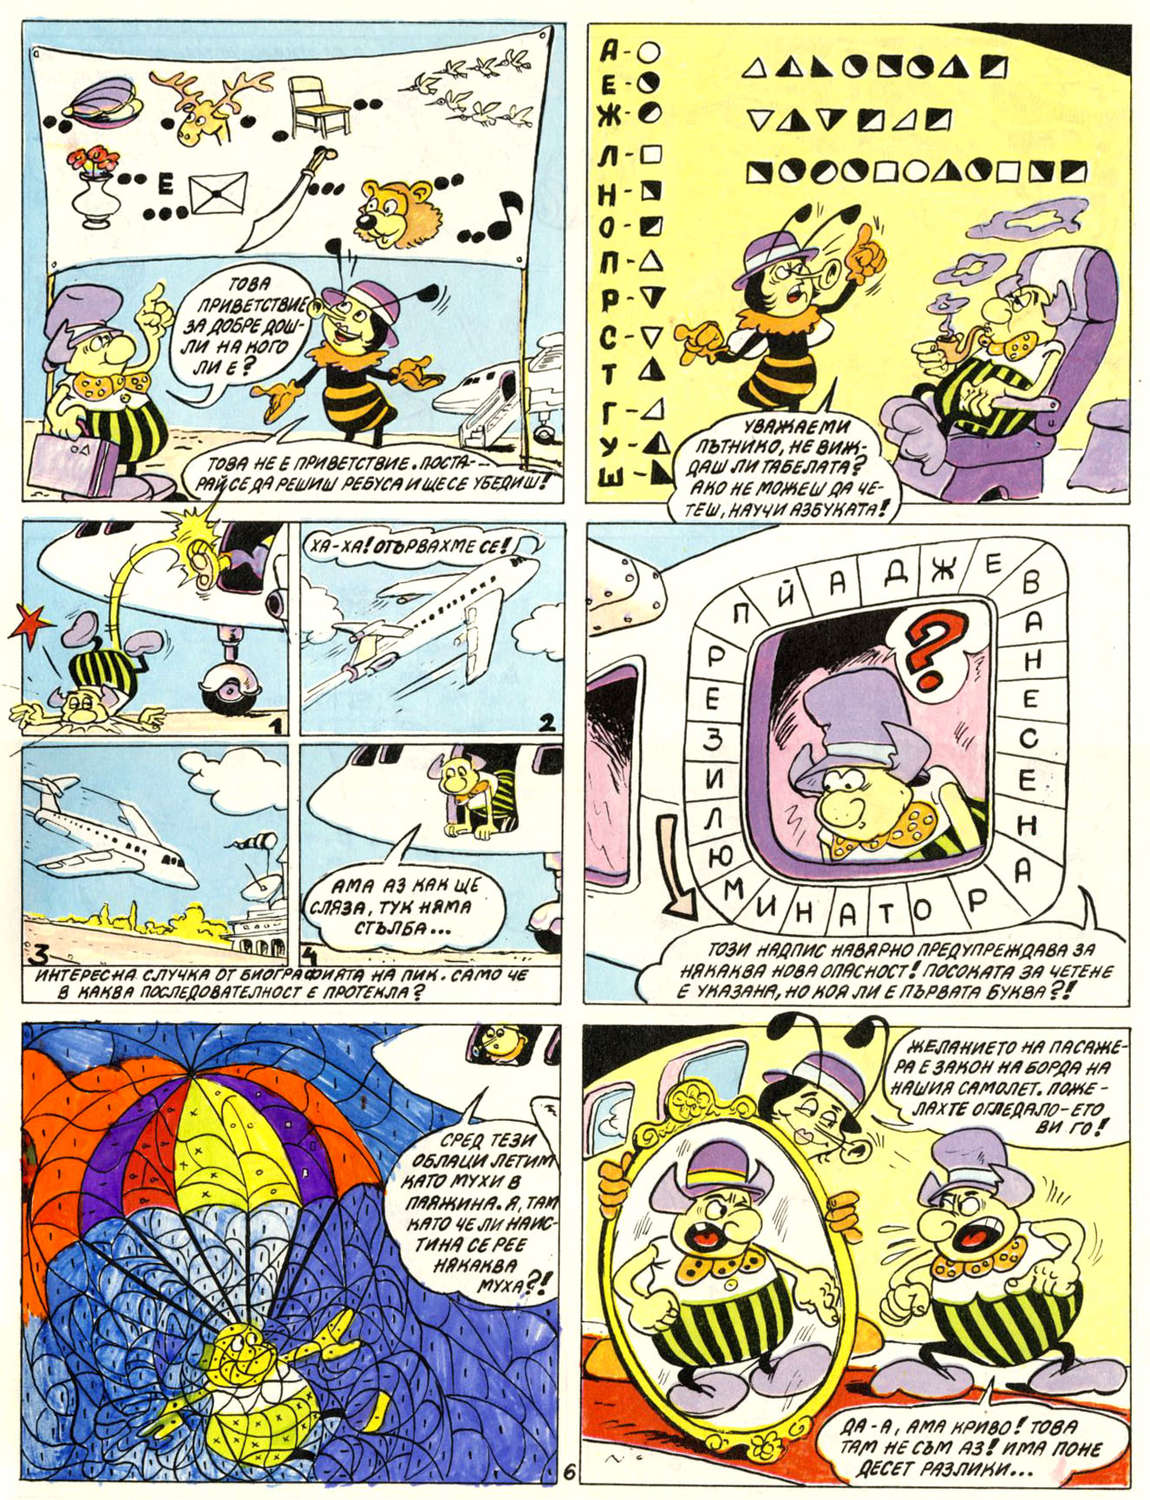 Е
ТОВА
ПРИВЕТСТВИЕ
ЗА ДОБРЕ ДОШ-
ЛИ НА КОГО
ЛИ Е?
ТОВА НЕ Е ПРИВЕТСТВИЕ. ПОСТА-
РАЙ СЕ ДА РЕШИШ РЕБУСА И ЩЕ СЕ УБЕДИШ!
А -
Е -
Ж -
Л -
Н -
О -
П -
Р -
С -
Т
Г -
У -
Ш -
УВАЖАЕМИ
ПЪТНИКО, НЕ ВИЖ-
ДАШ ЛИ ТАБЕЛАТА?
АКО НЕ МОЖЕШ ДА ЧЕ-
ТЕШ, НАУЧИ АЗБУКАТА!
1
ХА-ХА! ОТЪРВАХМЕ СЕ!
2
3
АМА АЗ КАК ЩЕ
СЛЯЗА, ТУК НЯМА
СТЪЛБА...
4
ИНТЕРЕСНА СЛУЧКА ОТ БИОГРАФИЯТА НА ПИК. САМО ЧЕ
В КАКВА ПОСЛЕДОВАТЕЛНОСТ Е ПРОТЕКЛА?
П Й А Д Ж Е В А Н Е С Е Н А Р О Т А Н И М Ю Л И З Е Р
?
ТОЗИ НАДПИС НАВЯРНО ПРЕДУПРЕЖДАВА ЗА
НЯКАКВА НОВА ОПАСНОСТ! ПОСОКАТА ЗА ЧЕТЕНЕ
Е УКАЗАНА, НО КОЯ ЛИ Е ПЪРВАТА БУКВА?!
СРЕД ТЕЗИ
ОБЛАЦИ ЛЕТИМ
КАТО МУХИ В
ПАЯЖИНА. Я, ТАМ
КАТО ЧЕ ЛИ НАИС-
ТИНА СЕ РЕЕ
НЯКАКВА
МУХА?!
ЖЕЛАНИЕТО НА ПАСАЖЕ-
РА Е ЗАКОН НА БОРДА НА
НАШИЯ САМОЛЕТ. ПОЖЕ-
ЛАХТЕ ОГЛЕДАЛО-ЕТО
ВИ ГО!
ДА-А, АМА КРИВО! ТОВА
ТАМ НЕ СЪМ АЗ! ИМА ПОНЕ
ДЕСЕТ РАЗЛИКИ...
6